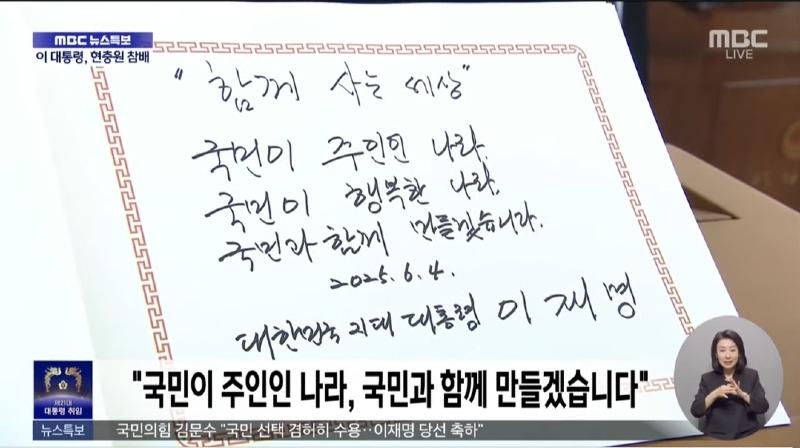 MBC 뉴스특보
이 대통령, 현충원 참배
MBC
LIVE
"함께 사는 세상"
국민이 주인인 나라,
국민이 행복한 나라,
국민과 함께 만들겠습니다.
2025. 6. 4.
대한민국 21대 대통령 이재명
"국민이 주인인 나라, 국민과 함께 만들겠습니다"
제21대
대통령 취임
뉴스특보
국민의힘 김문수 "국민 선택 겸허히 수용‥이재명 당선 축하"